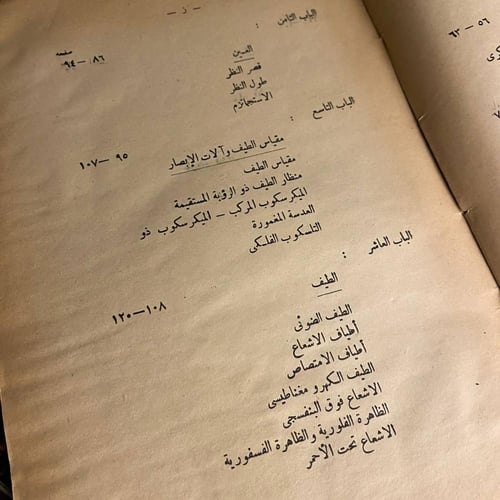 — ز —
الباب الثامن :
صفحة
العين ٨٦ — ٩٤
قصر النظر
طول النظر
الاستجماتزم
الباب التاسع :
مقياس الطيف وآلات الإبصار ٩٥ — ١٠٧
مقياس الطيف
منظار الطيف ذو الرؤية المستقيمة
الميكرسكوب المركب — الميكرسكوب ذو
العدسة المغمورة
التلسكوب الفلكى
الباب العاشر :
الطيف ١٠٨ — ١٢٠
الطيف الضوئى
أطياف الاشعاع
أطياف الامتصاص
الطيف الكهرو مغناطيسى
الاشعاع فوق البنفسجى
الظاهرة الفلورية والظاهرة الفسفورية
الاشعاع تحت الأحمر
٥٦ — ٦٣